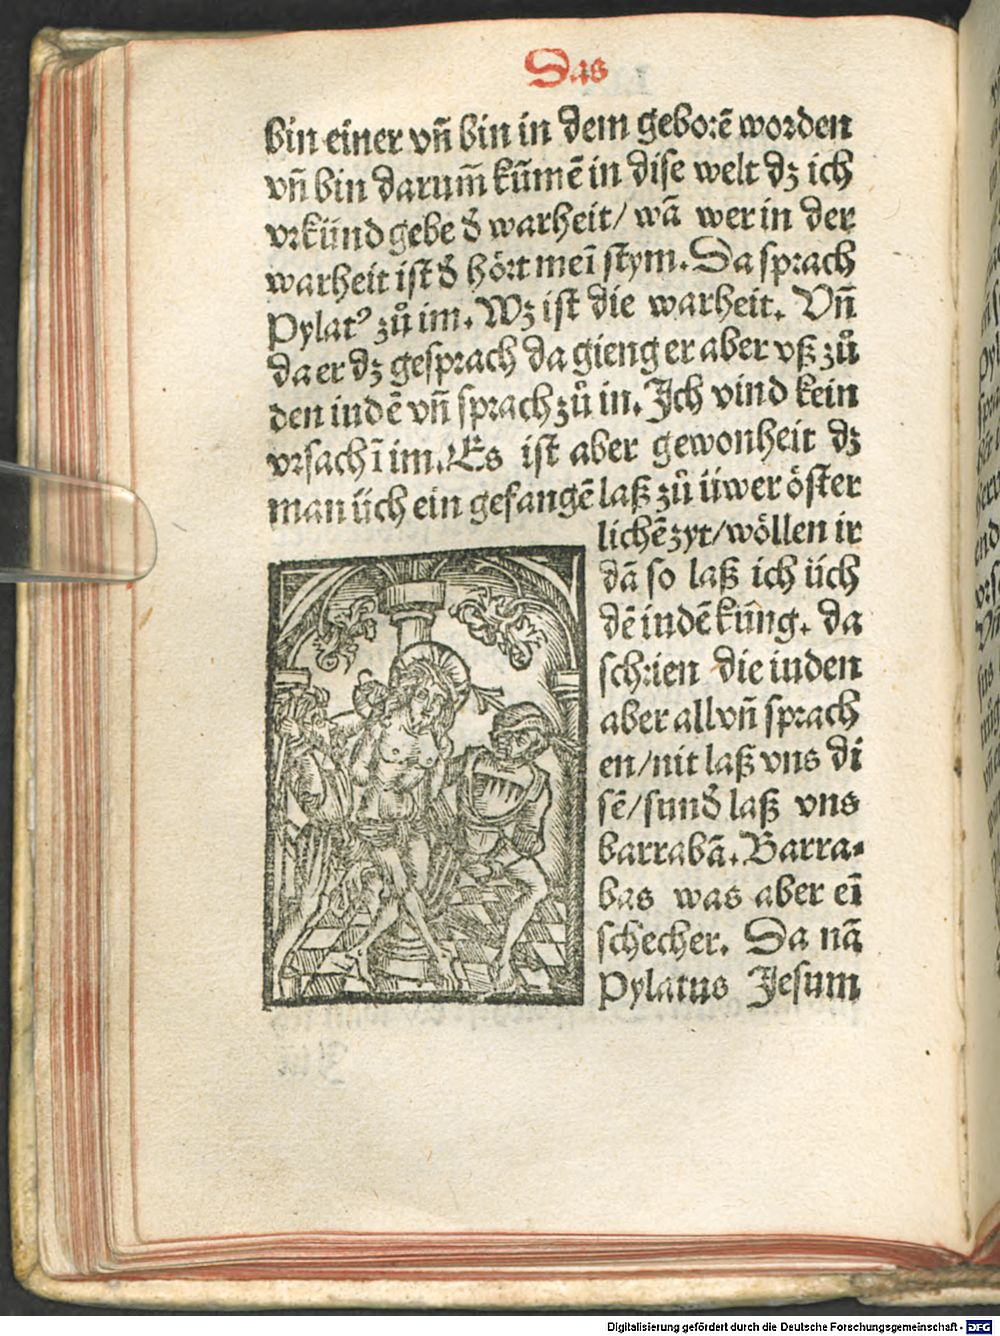 Das
bin einer vn̄ bin in dem geborē worden
vn̄ bin darum̄ kūmē in dise welt dz ich
vrkünd gebe d̕ warheit/ wā wer in der
warheit ist d̕ hört meī stym. Da sprach
Pylatꝰ zů im. Wz ist die warheit. Vn̄
da er dz gesprach da gieng er aber vß zů
den iudē vn̄ sprach zů in. Ich vind kein
vrsach ī im. Es ist aber gewonheit dz
man üch ein gefangē laß zů üwer öster
lichē zyt/ wöllen ir
dā so laß ich üch
dē iudē kün̄g. da
schrien die iuden
aber all vn̄ sprach
en/ nit laß vns di
sē/ sund̕ laß vns
barrabā. Barra⸗
bas was aber eī
schecher. Da nā
Pylatus Jesum
Digitalisierung gefördert durch die Deutsche Forschungsgemeinschaft - DFG